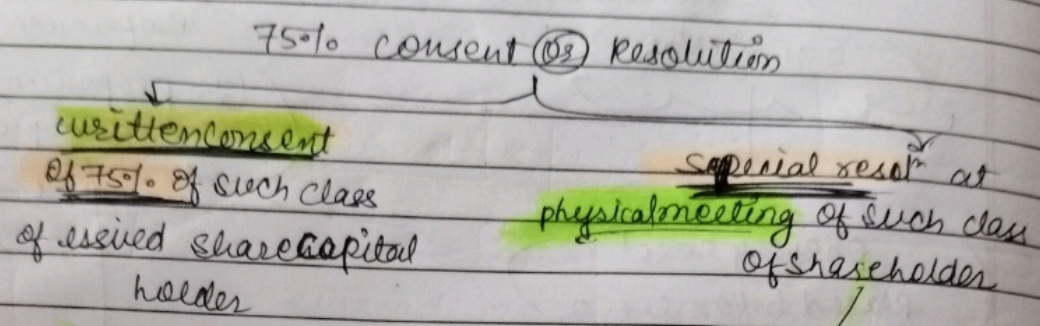 75% consent or Resolution
written consent
of 75% of such class
of issued share capital
holder
special resoln at
physical meeting of such class
of shareholder